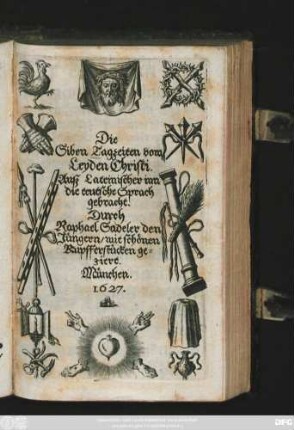 Die
Siben Tagzeiten vom
Leyden Christi.
Auß Lateinischer inn
die teutsche Sprach
gebracht.
Durch
Raphael Sadeler den
Jüngern / mit schönen
Kupfferstücken ge-
ziert.
München.
1627.